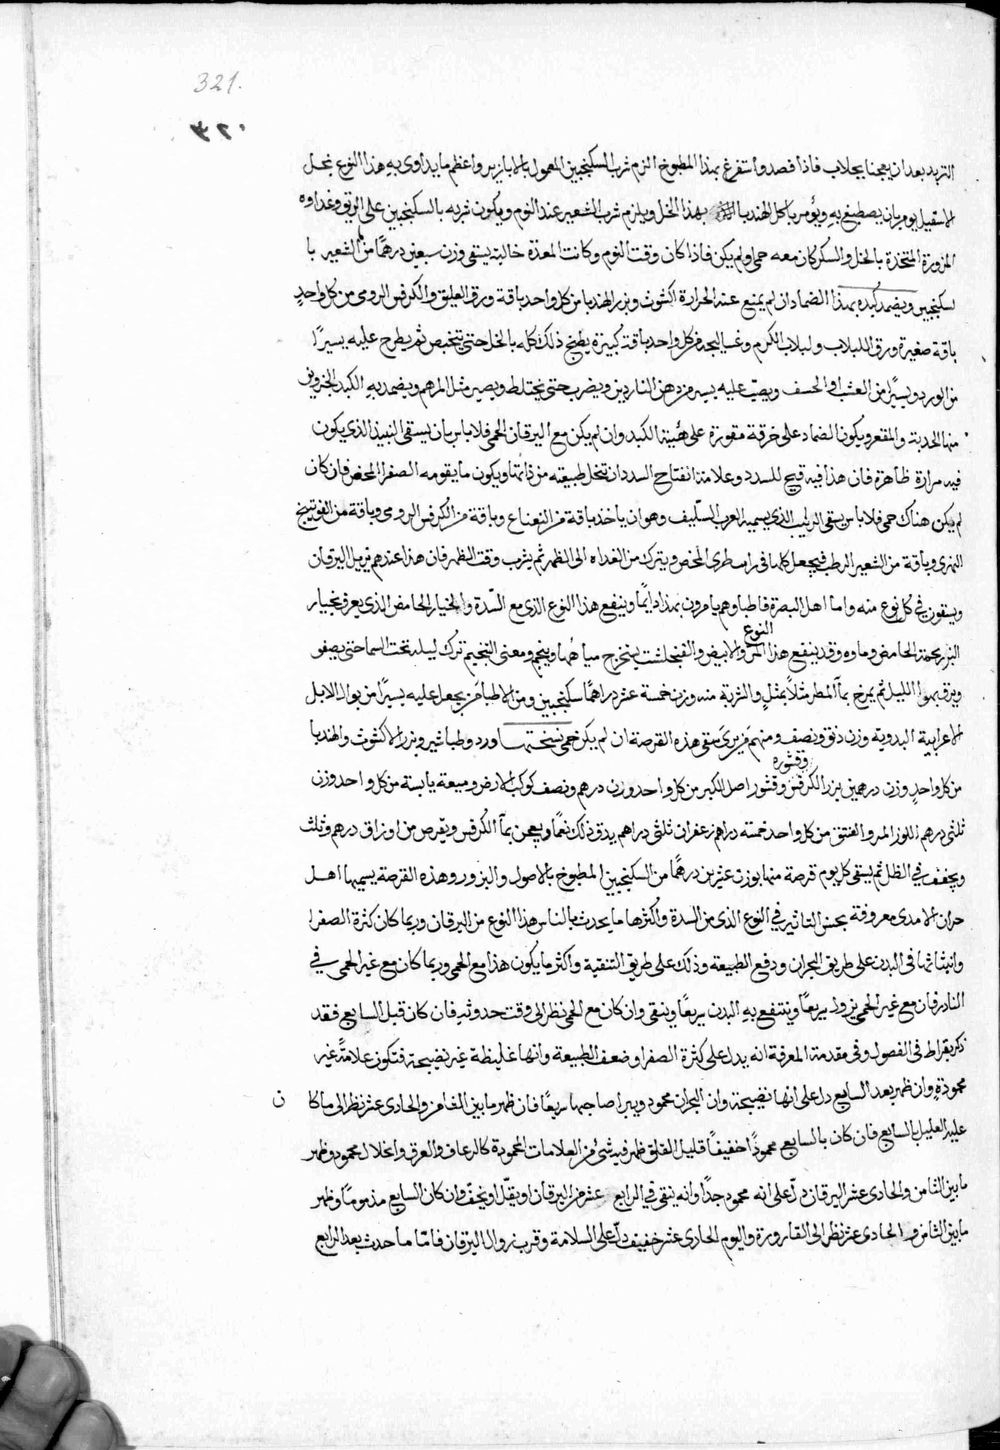 321.
٣٢٠
التربد بعد ان يعجنا بجلاب فاذا فصد واستفرغ بهذا المطبوخ الزم شرب السكنجبين المعمول بالابازير واعظم ما يداوى به هذا النوع بخل
الاسقيل يوميا بان يصطبغ به ويؤمر باكل الهندبا بهذا الخل ويلزم شرب الشعير عند النوم ويكون شربه بالسكنجبين على الريق وغداوه
المزورة المتخذة بالخل والسكر كان معه حمى او لم يكن فاذا كان وقت النوم وكانت المعدة خالية يسقى وزن سبعين درهمًا من الشعير با
لسكنجبين ويضمد كبده بهذا الضماد ان لم يمنع عنه الحرارة اكشوث وبزر الهندبا من كل واحد باقة ورق العليق والكرفس الرومى من كل واحدٍ
باقة صغيرة ورق اللبلاب ولبلاب الكرم من كل واحد باقة كبيرة يطبخ ذلك كله بالخل حتى يتخبص ثم يطرح عليه يسيرًا
من الورد ويسيرًا من ويصب عليه يسير من دهن الناردين ويضرب حتى يختلط ويصير مثل المرهم ويضمد به الكبد الجزوين
منها الحدبة والمقعر ويكون الضماد على خرقة مقورة على هيئة الكبد وان لم يكن مع اليرقان الحمى فلا باس بان يسقى النبيذ الذى يكون
فيه مرارة ظاهرة فان هذا فيه تفتيح للسدد وعلامة انفتاح السدد ان تنحل طبيعته من ذاتها ويكون ما يقومه الصفرا المحض فان كان
لم يكن هناك حمى فلا باس بسقى الذى يسميه العرب السليف وهو ان ياخذ باقة من النعناع وباقة من الكرفس الرومى وباقة من الفوتنج
النهرى وباقة من الشعير الرطب فيجعل كلها فى المخص ويترك من الغداه الى الظهر ثم يشرب وقت الظهر فان هذا عندهم يزيل اليرقان
ويسقون فى كل نوع منه واما اهل البصرة فاطباوهم يامرون بهذا دايمًا وينفع هذا النوع الذى مع السدة والخيار الحامض الذى يعرف بخيار
البزر بحمة الحامض وماوه وقد ينفع هذا النوع والابيض والفنجنكشت يستخرج مياهُما وينجم ومعنى التنجيم ترك ليله تحت السما حتى يصفو
ويرق بهوا الليل ثم يمزج بمآ المطر مثلاً بمثلٍ والشربة منه وزن خمسة عشر دراهمًا سكنجبين ومن الاطبا من يجعل عليه يسيرًا من بوال الابل
الاعرابية البدوية وزن دنق ونصف ومنهم من يرى سقى هذه القرصة ان لم يكن حمى نسختها ورد وطباشير وبزر الاكشوث والهندبا
من كل واحدٍ وزن درهمين بزر الكرفس وقشوره وقشور اصل الكبر من كل واحد وزن درهم ونصف كوكب الارض وميعة يابسة من كل واحد وزن
ثلثى درهم اللوز المر والفستق من كل واحد خمسة دراهم زعفران ثلثى دراهم يدق ذلك نعمًا ويعجن بمآ الكرفس ويقرص من اوزاق درهم وثلث
ويجفف فى الظل ثم يسقى كل يوم قرصة منها بوزن عشرين درهمًا من السكنجبين المطبوخ بالاصول والبزور وهذه القرصة يسميها اهل
حران الامدى معروفة بحسن التاثير فى النوع الذى من السدة واكثرها ما يحدث بالناس هذا النوع من اليرقان وربما كان كثرة الصفرا
وانبثاثها فى البدن على طريق البحران ودفع الطبيعة وذلك على طريق التنقية واكثر ما يكون هذا مع الحمى وربما كان مع غير الحمى فى
النادر فان مع غير الحمى يزول سريعًا وينتفع به البدن سريعًا وينقى وان كان مع الحمى نظر الى وقت حدوثه فان كان قبل السابع فقد
ذكر بقراط فى الفصول وفى مقدمة المعرفة انه يدل على كثرة الصفرا وضعف الطبيعة وانها غليظة غير نضيجة فتكون علامةً غير
محمودةٍ وان ظهر بعد السابع دل على انها نضيجة وان البحران محمود ويبرا صاحبها سريعًا فان ظهر ما بين الثامن والحادى عشر نظر الى ما كا ن
عليه العليل بالسابع فان كان بالسابع محمودًا خفيفًا قليل القلق ظهر فيه شئ من العلامات المحمودة كالرعاف والعرق وانحلال محمود وظهر
ما بين الثامن والحادى عشر اليرقان دلّ على انه محمود جدًا وانه ينقى فى الرابع عشر من اليرقان او يقل او يخف وان كان السابع مذمومًا وظهر
ما بين الثامن والحادى عشر نظر الى القارورة واليوم الحادى عشر خفيف دلّ على السلامة وقرب زوال اليرقان فامّا ما حدث بعد الرابع